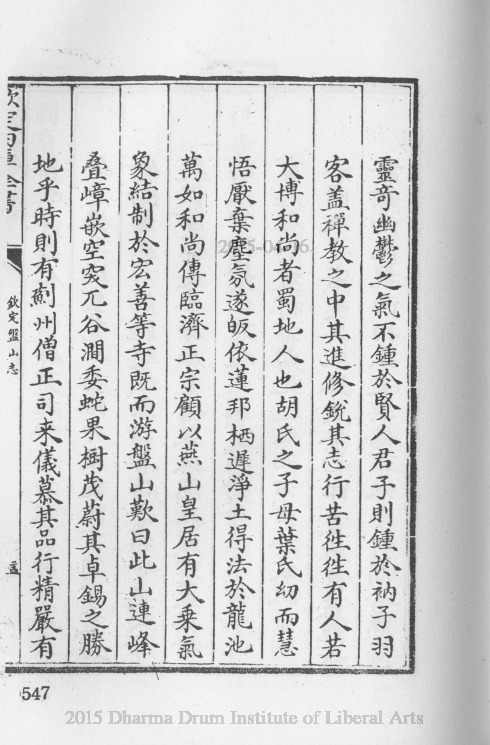 靈竒幽鬱之氣不鍾於賢人君子則鍾於衲子羽
客盖禪教之中其進修銳其志行苦徃徃有人若
大博和尚者蜀地人也胡氏之子母葉氏幼而慧
悟厭棄塵氛遂皈依蓮邦栖遲淨土得法於龍池
萬如和尚傳臨濟正宗顧以燕山皇居有大乗氣
象結制於宏善等寺既而游盤山歎曰此山連峰
叠嶂嵌空突兀谷澗委蛇果樹茂蔚其卓錫之勝
地乎時則有薊州僧正司来儀慕其品行精嚴有
欽定四庫全書
欽定盤山志
547
2015 Dharma Drum Institute of Liberal Arts